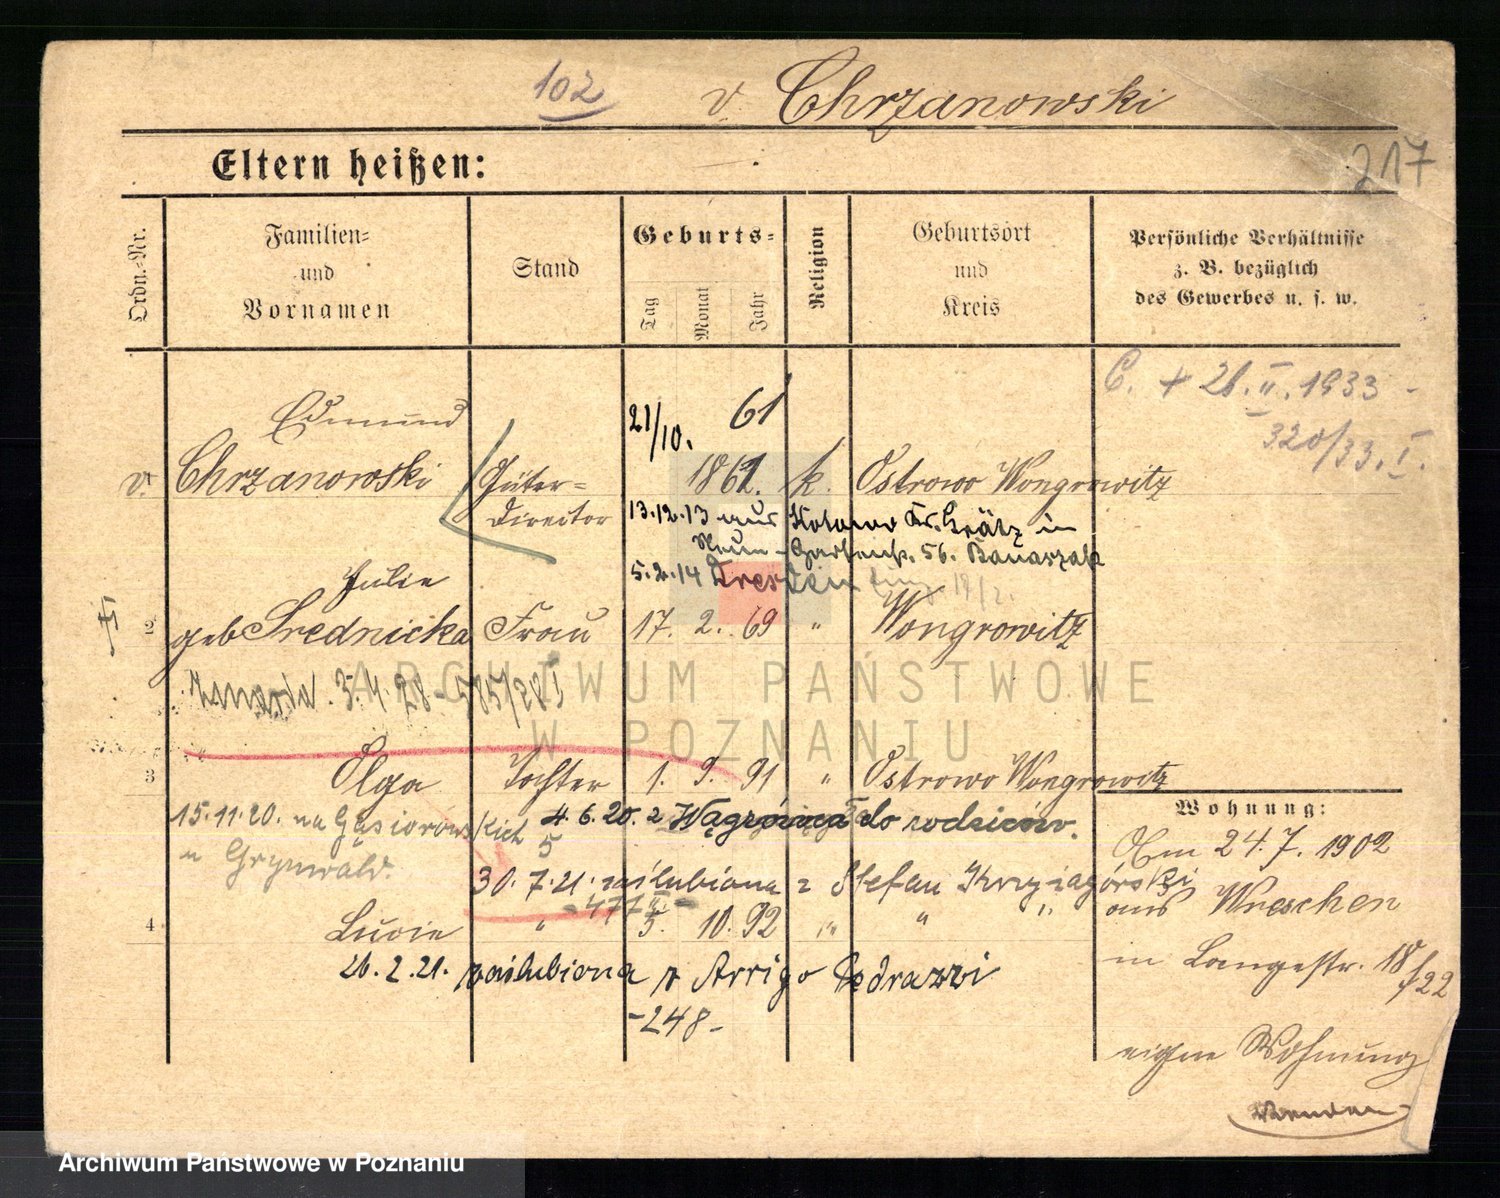 102 v Chrzanowski
Eltern heißen:
217
Ordn.-Nr.
Familien- und Vornamen
Stand
Geburts-
Tag Monat Jahr
Religion
Geburtsort und Kreis
Persönliche Verhältnisse z. B. bezüglich des Gewerbes u. s. w.
C. + 26. II. 1933
320/33. I.
Edmund 21/10. 61
v. Chrzanowski Güter- 1861. k. Ostrowo Wongrowitz
Director 13.12.13 aus Kotowo Kr. Grätz in
Gartenstr. 56. Banaszak
5.2.14 Dresden
Julie
2 geb Srednicka Frau 17. 2. 69 " Wongrowitz
zmarła 3.4.28 - 585/28 I
ARCHIWUM PAŃSTWOWE
W POZNANIU
3 Olga Tochter 1. 9. 91 " Ostrowo Wongrowitz
Wohnung:
15.11.20. na Gąsiorowskich 5 4.6.20. z Wągrówca do rodziców.
u Grynwald.
Am 24.7. 1902
30.7.21. zaślubiona z Stefan Krzyżagórski
aus Wreschen
- 477 II -
4 Lucie " 5. 10. 92 " " "
in Langestr. 18/22
26.2.21. zaślubiona z Arrigo Pedrazzi
- 248 -
eigne Wohnung
Archiwum Państwowe w Poznaniu